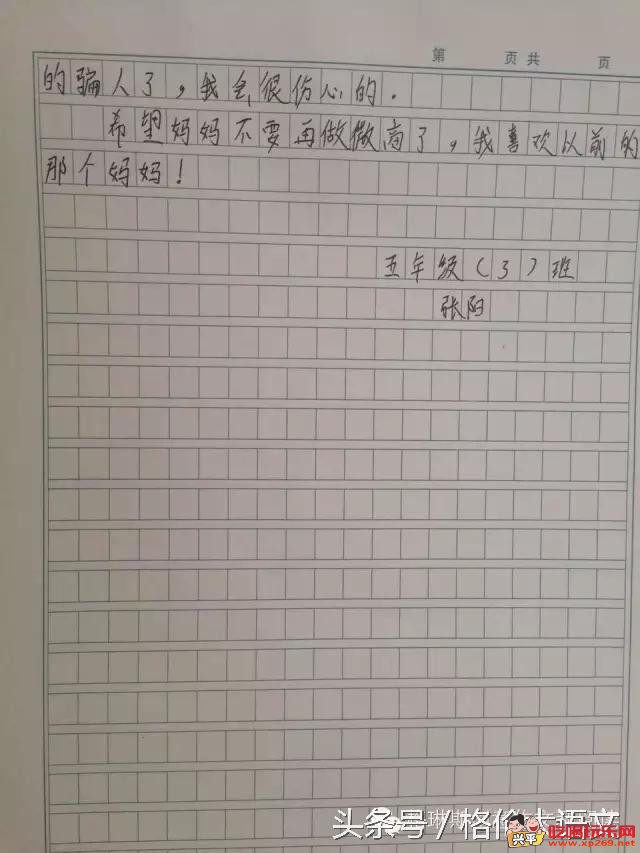 第 页共 页
的骗人了，我会很伤心的．
希望妈妈不要再做微商了，我喜欢以前的
那个妈妈！
五年级（3）班
张阳
头条号／格伦大语文
兴平
吃喝玩乐网
www.xp269.net